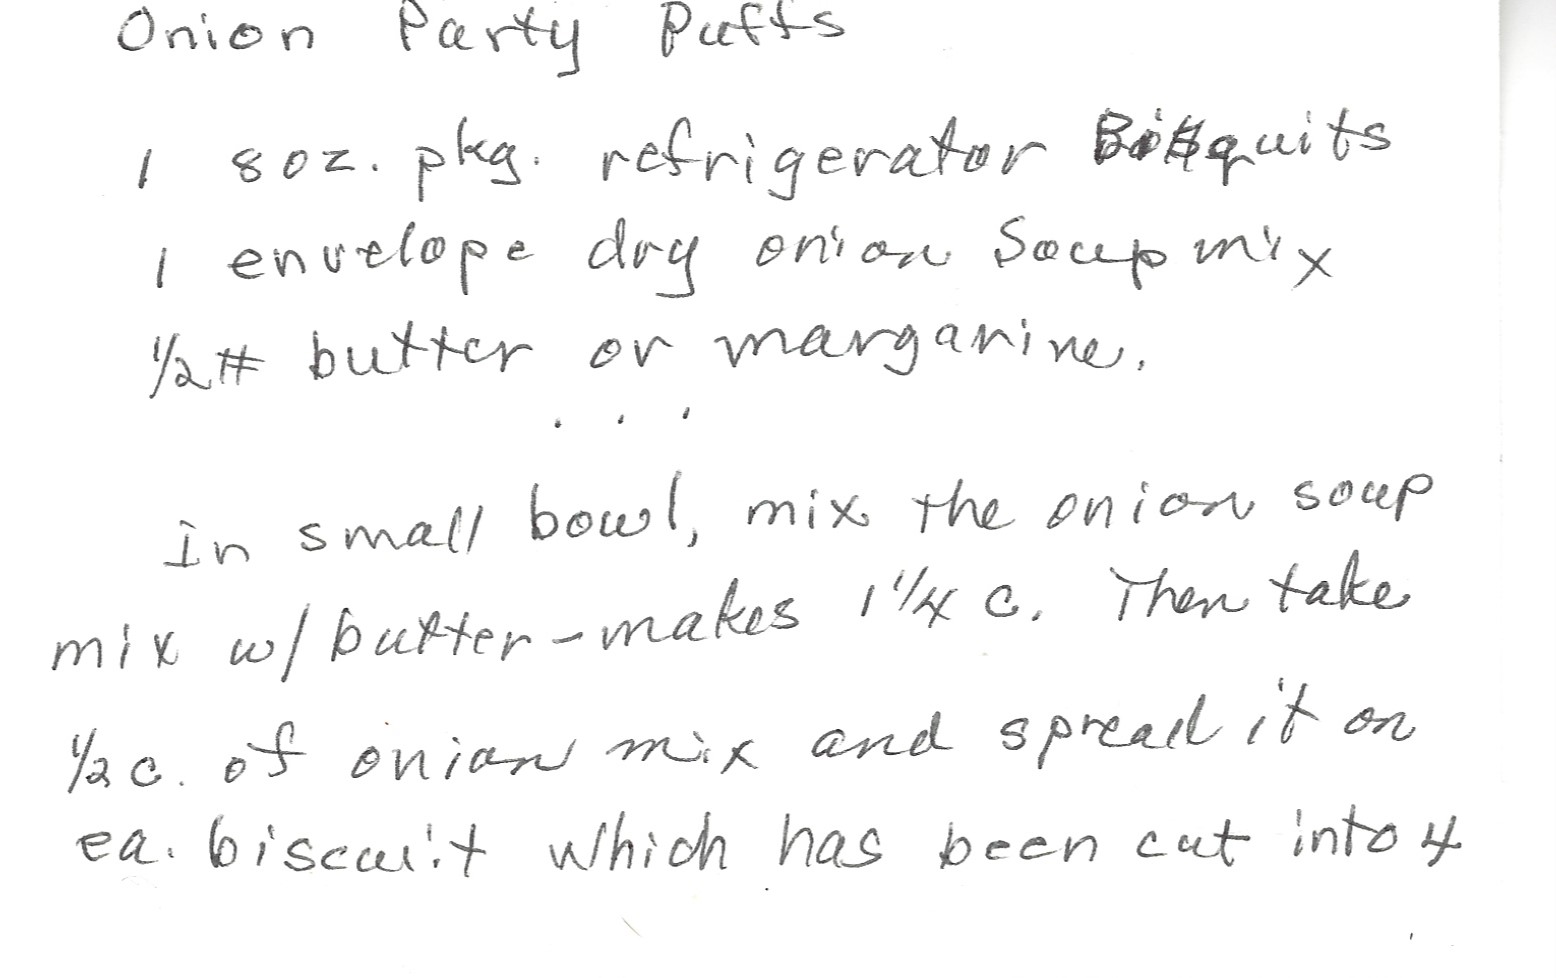 Onion Party Puffs
1 8oz. pkg. refrigerator Bisquits
1 envelope dry onion Soup mix
1/2 # butter or margarine.
. . .
In small bowl, mix the onion soup
mix w/ butter - makes 1 1/4 c. Then take
1/2 c. of onion mix and spread it on
ea. biscuit which has been cut into 4